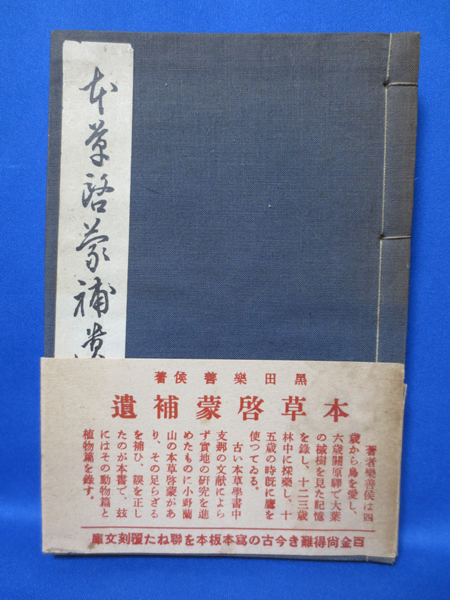 本草啓蒙補遺
黒田樂善侯著
本草啓蒙補遺
著者樂善侯は四
歳から鳥を愛し、
六歳關原驛で大葉
の槭樹を見た記憶
を錄し、十二三歳
林中に採藥し、十
五歳の時既に鷹を
使つてゐる。
古い本草學書中
支那の文献によら
ず實地の研究を進
めたものに小野蘭
山の本草啓蒙があ
り、その足らざる
を補ひ、誤を正し
たのが本書で、玆
にはその動物篇と
植物篇を錄す。
百金尚得難き今古の寫本板本を聯ねた覆刻文庫